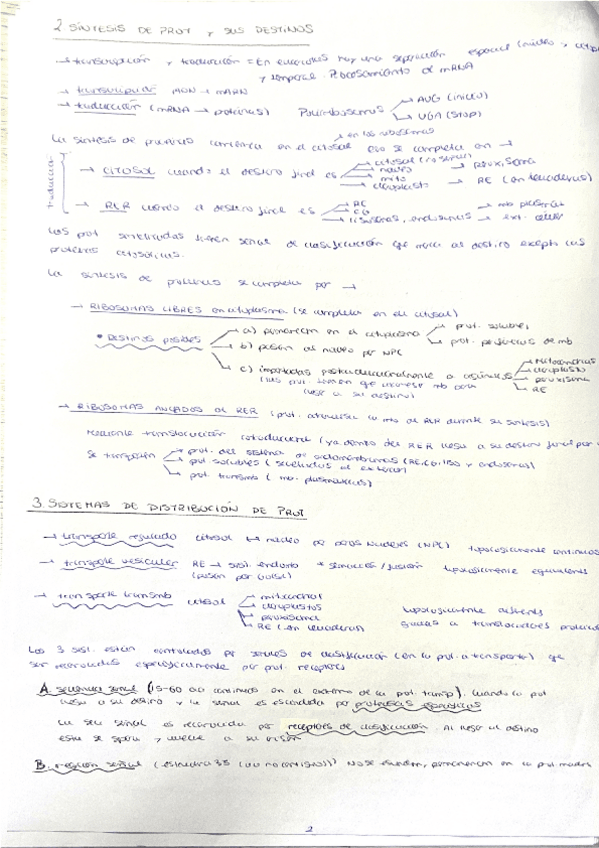 2 SÍNTESIS DE PROT Y SUS DESTINOS
→ transcripción y traducción = En eucariotas hay una separación espacial (núcleo y citop
y temporal. Procesamiento del mRNA
→ transcripción ADN → mARN
→ traducción (mRNA → proteínas) Polirribosomas AUG (inicio)
UGA (STOP)
→ en los ribosomas
La síntesis de proteínas comienza en el citosol eso se completa en →
traducción
→ CITOSOL cuando el destino final es citosol (no señal)
núcleo → peroxisoma
mito
cloroplasto → RE (en levaduras)
→ RER cuando el destino final es RE
CG → mb plasmát
lisosomas, endosomas → ext. celular
Las prot sintetizadas tienen señal de clasificación que marca al destino excepto las
proteínas citosólicas.
La síntesis de proteínas se completa por →
→ RIBOSOMAS LIBRES en citoplasma (se completa en el citosol)
* DESTINOS POSIBLES a) permanecen en el citoplasma prot. solubles
prot. periféricas de mb
b) pasan al núcleo por NPC
c) importadas postraduccionalmente a orgánulos mitocondrias
cloroplasto
peroxisoma
RE
(las prot. tienen que atravesar mb para
llegar a su destino)
→ RIBOSOMAS ANCLADOS al RER (prot. atraviesa la mb del RER durante su síntesis)
Mediante translocación cotraduccional (ya dentro del RER llega a su destino final por
Se transportan prot. del sistema de endomembranas (RE, Golgi, liso y endosomas)
prot solubles (secretadas al exterior)
prot. transmb (mb. plasmática)
3. SISTEMAS DE DISTRIBUCIÓN DE PROT
→ transporte regulado citosol ↔ núcleo por poros nucleares (NPC) topológicamente continuos
→ transporte vesicular RE → sist. endomb * gemación / fusión topológicamente equivalentes
(pasan por Golgi)
→ transporte transmb citosol mitocondria
cloroplastos
peroxisoma
RE (en levaduras)
topológicamente diferentes
gracias a translocadores proteicos
Los 3 sist. están controlados por señales de clasificación (en la prot. a transportar) que
ser reconocidas específicamente por prot. receptores
A. secuencia señal (15-60 aa continuos en el extremo de la prot. transp). Cuando la prot
llega a su destino y la señal es escindida por proteasas específicas
La sec señal es reconocida por receptores de clasificación. Al llegar al destino
esta se separa y vuelve a su origen
B. región señal (estructura 3D (aa no contiguos)) No se escinden, permanecen en la prot madura
2